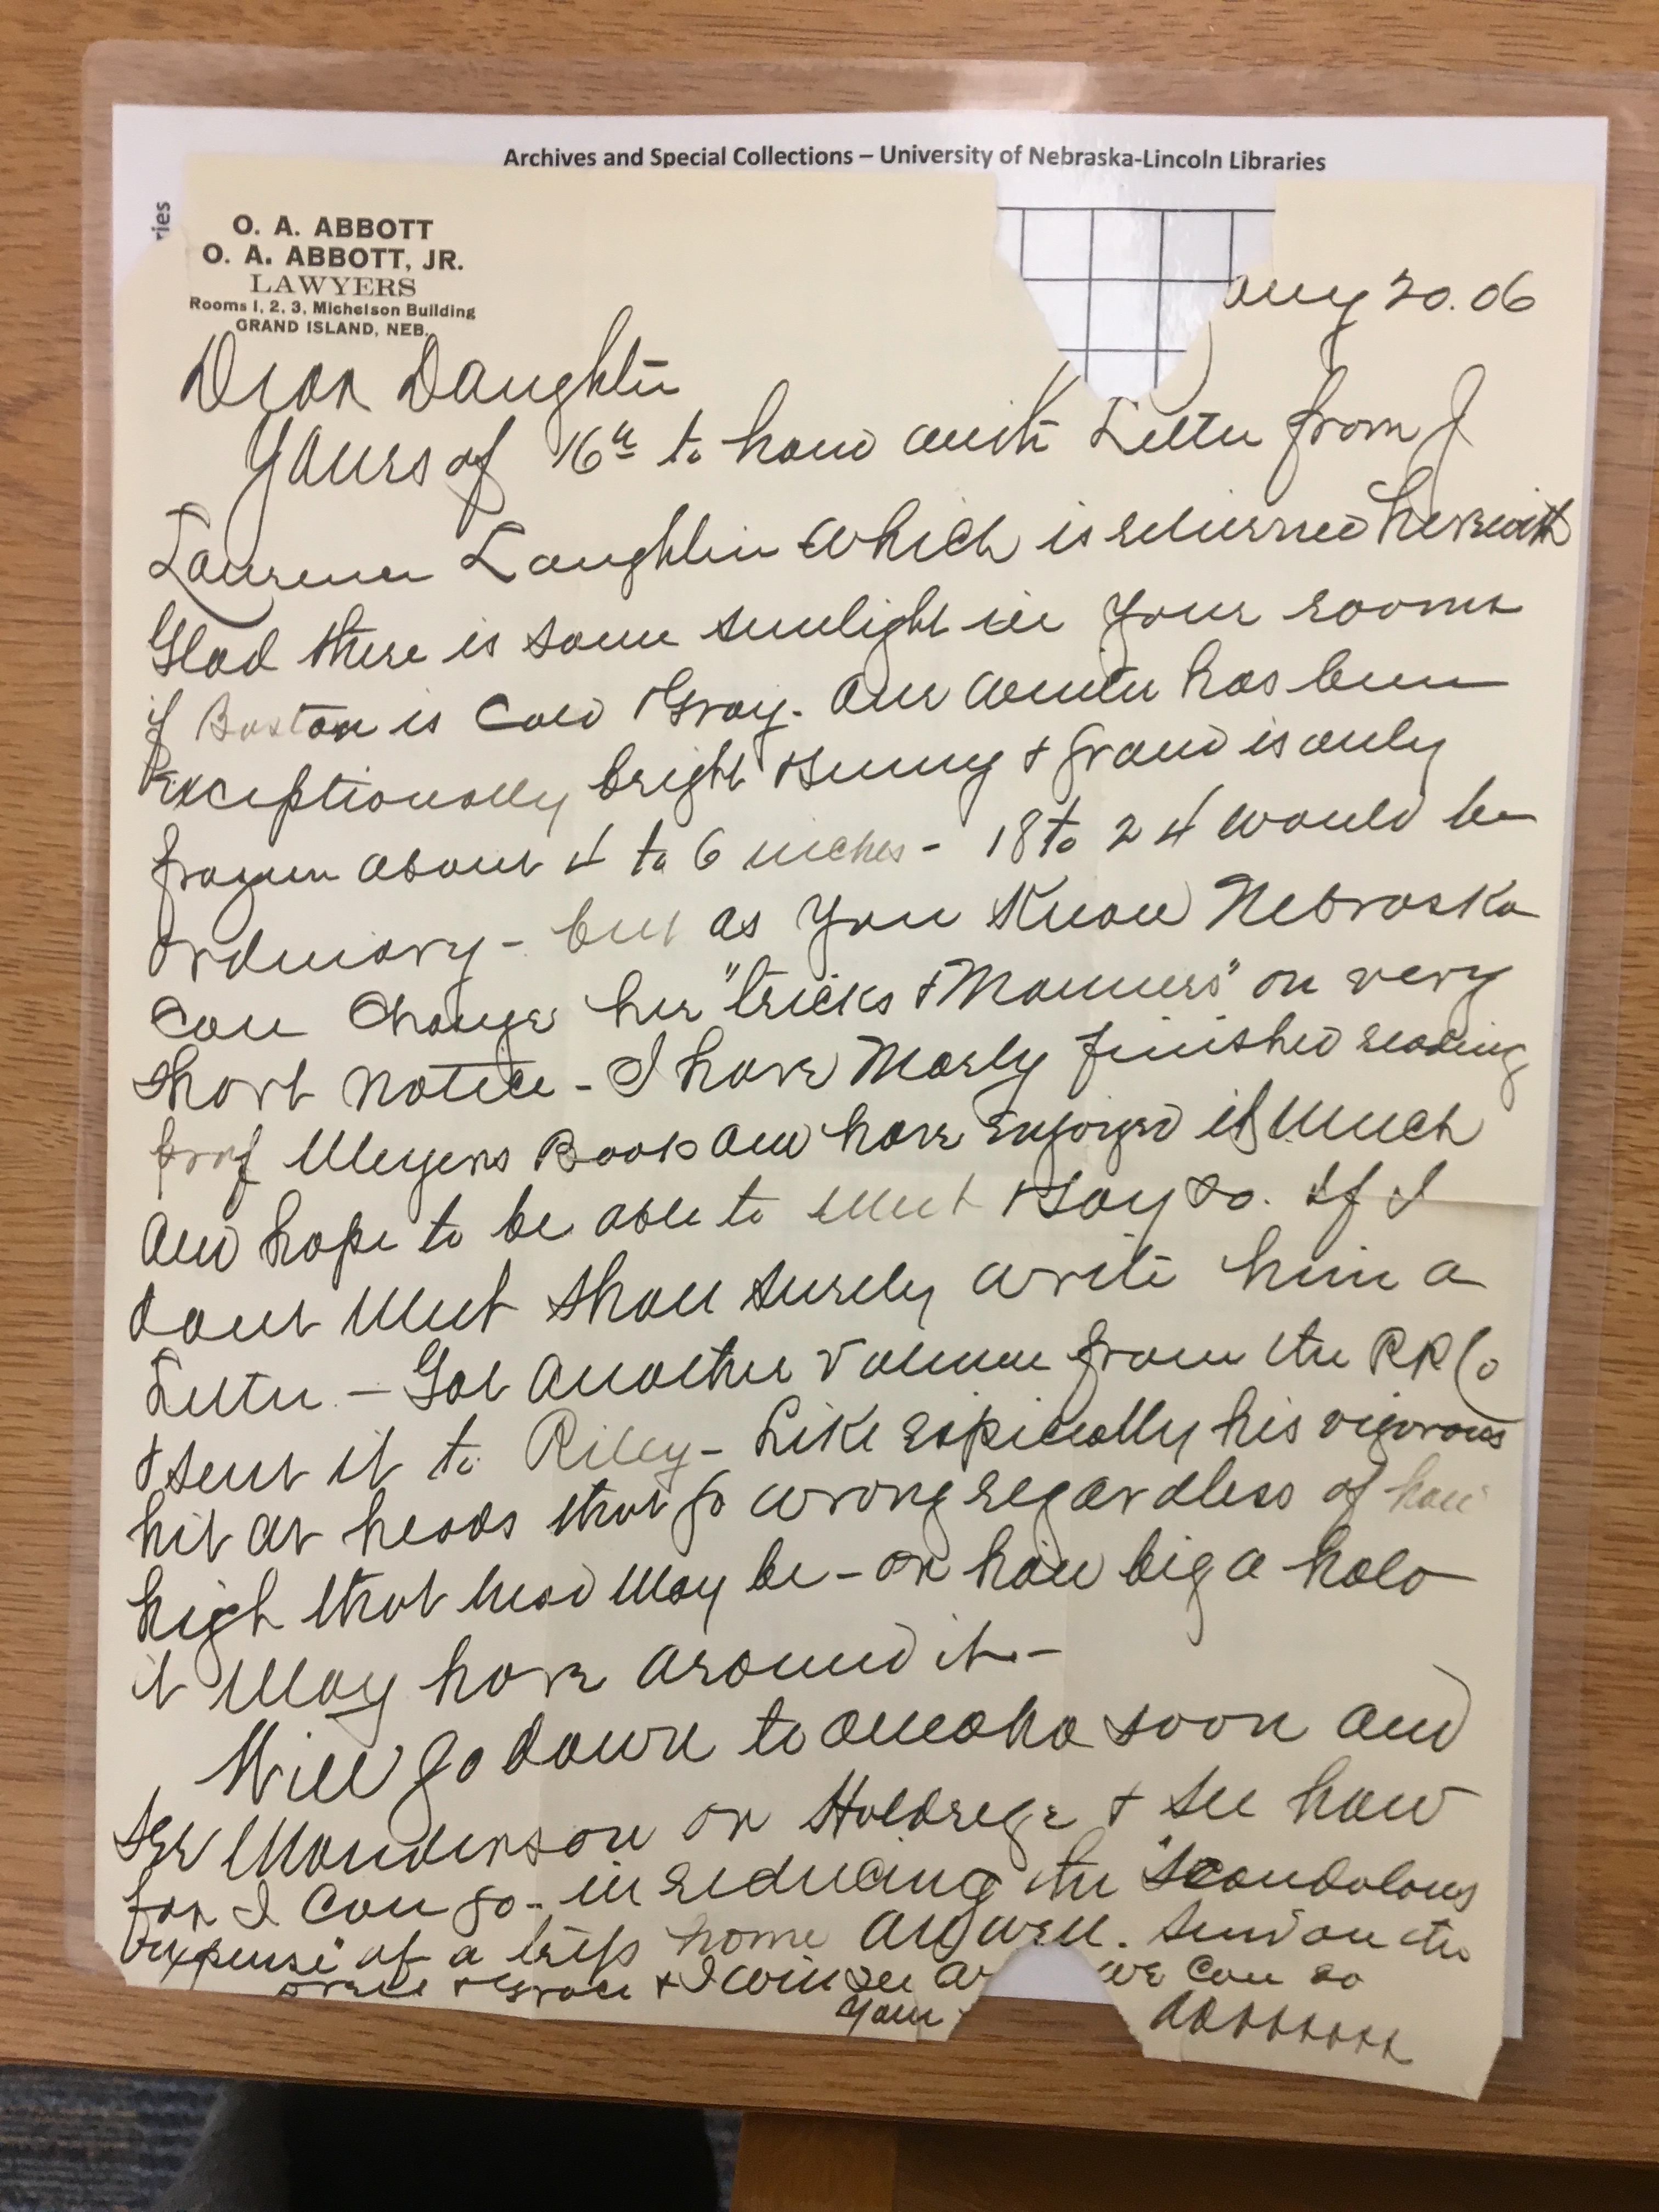 Archives and Special Collections – University of Nebraska-Lincoln Libraries
ries
O. A. ABBOTT
O. A. ABBOTT, JR.
LAWYERS
Rooms 1, 2, 3, Michelson Building
GRAND ISLAND, NEB.
uary 20.06
Dear Daughter
Yours of 16th to hand with Letter from J
Laurence Laughlin which is returned herewith
Glad there is some sunlight in your rooms
if Boston is Cold & Gray. Our winter has been
Exceptionally bright & sunny & ground is only
frozen about 4 to 6 inches - 18 to 24 would be
ordinary - but as you know Nebraska
can change her "tricks & Manners" on very
short notice - I have nearly finished reading
prof Meyers Book and have enjoyed it much
and hope to be able to meet & say so. If I
dont meet shall surely write him a
Letter - Got another volume from the RR Co
& sent it to Riley - Like especially his vigorous
hit at heads that go wrong regardless of how
high that head may be - or how big a halo
it may have around it -
Will go down to Omaha soon and
see Manderson or Holdrege & see how
far I can go - in reducing the "scandalous
expense" of a trip home and
& Grace & I will see we can so
Your